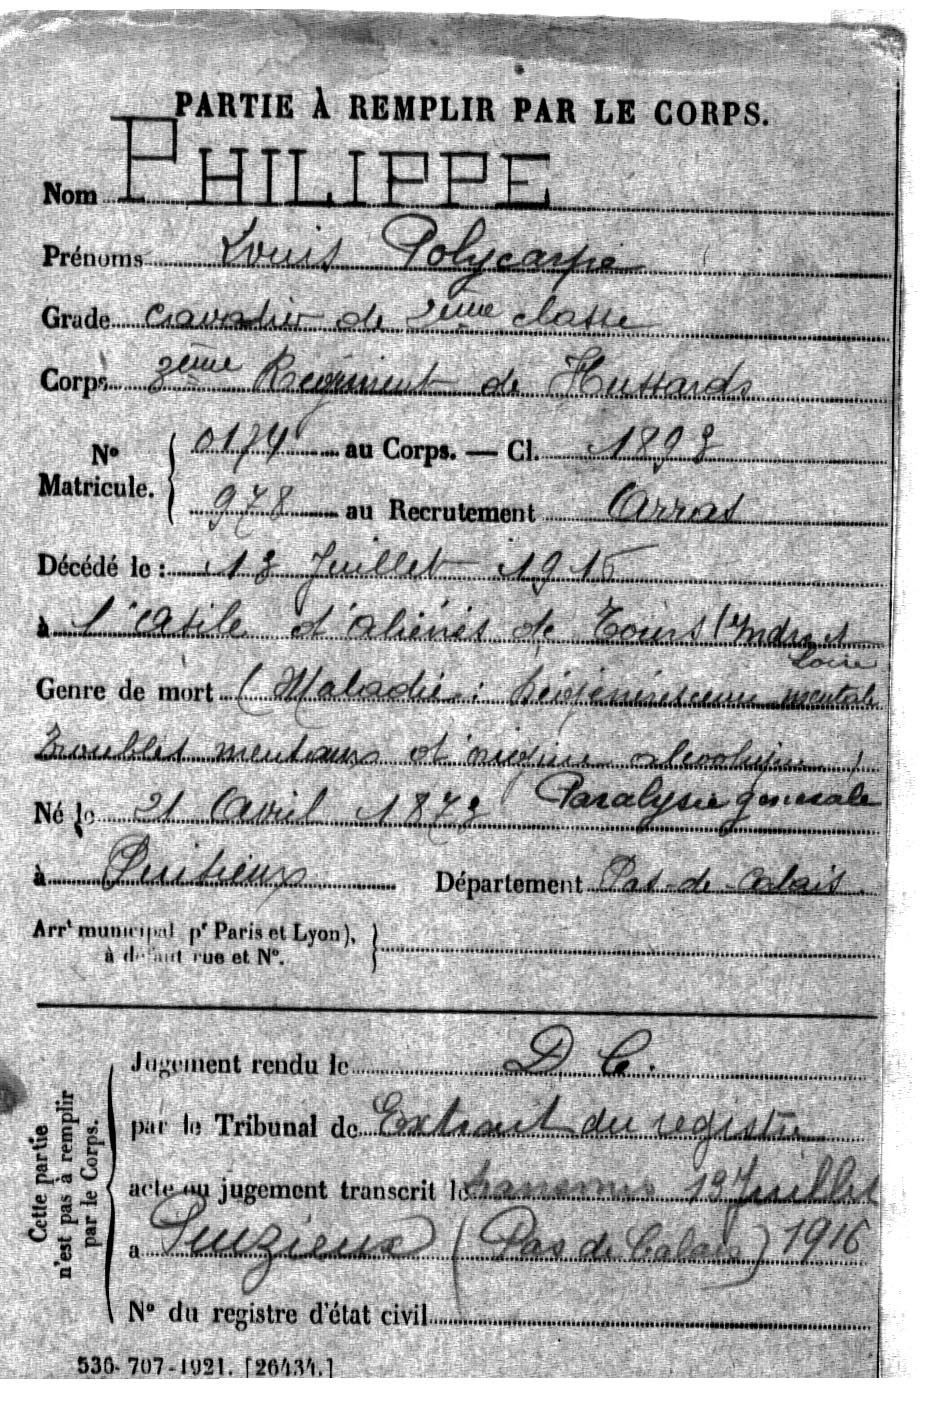 PARTIE À REMPLIR PAR LE CORPS.
Nom PHILIPPE
Prénoms Louis Polycarpe
Grade cavalier de 2ème classe
Corps 3ème Régiment de Hussards
Nº Matricule. 0174 au Corps. — Cl. 1893
978 au Recrutement Arras
Décédé le : 13 Juillet 1915
à l'asile d'aliénés de Tours (Indre et Loire
Genre de mort (Maladie : Dégénérescence mentale
Troubles mentaux d'origine alcoolique )
Paralysie générale
Né le 21 Avril 1873
à Puisieux Département Pas-de-Calais
Arrt municipal pr Paris et Lyon),
à défaut rue et Nº.
Cette partie
n'est pas à remplir
par le Corps.
Jugement rendu le D C.
par le Tribunal de Extrait du registre
acte ou jugement transcrit le transmis 19 Juillet
à Puizieux (Pas de Calais) 1916
Nº du registre d'état civil
536-707-1921. [26434.]